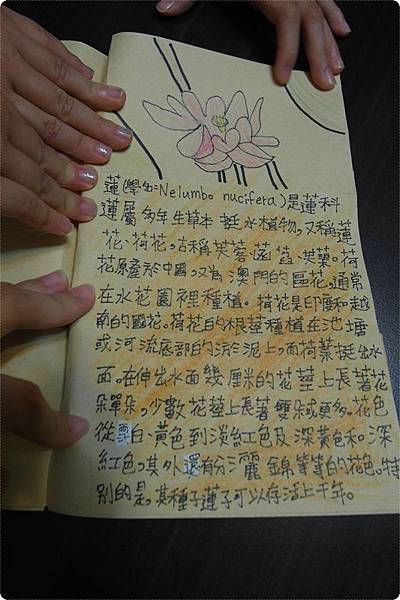 蓮(學名:Nelumbo nucifeta)是蓮科
蓮屬多年生草本挺水植物,又稱蓮
花、荷花,古稱芙蓉、菡萏、芙蕖。荷
花原產於中國,又為澳門的區花。通常
在水花園裡種植。荷花是印度和越
南的國花。荷花的根莖種植在池塘
或河流底部的淤泥上,而荷葉挺出水
面。在伸出水面幾厘米的花莖上長著花
朵單朵,少數花莖上長著雙朵或更多。花色
從雪白、黃色到淡紅色及深黃色和深
紅色,其外還有分灑錦等等的花色。特
別的是,其種子蓮子可以存活上千年。